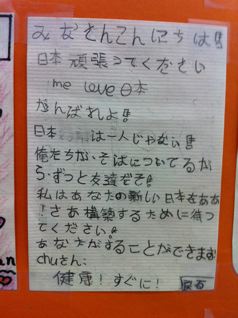 みなさんこんにちは!!
日本頑張ってください
me love 日本
がんばれよ!!
日本は一人じゃない!!
俺たちが、そばについてるか
ら、ずっと友達だぞ!
私はあなたの新しい日本をああ
!さあ構築するために待つ
てください。
あなたがすることができます
chuさん:
健康!すぐに!